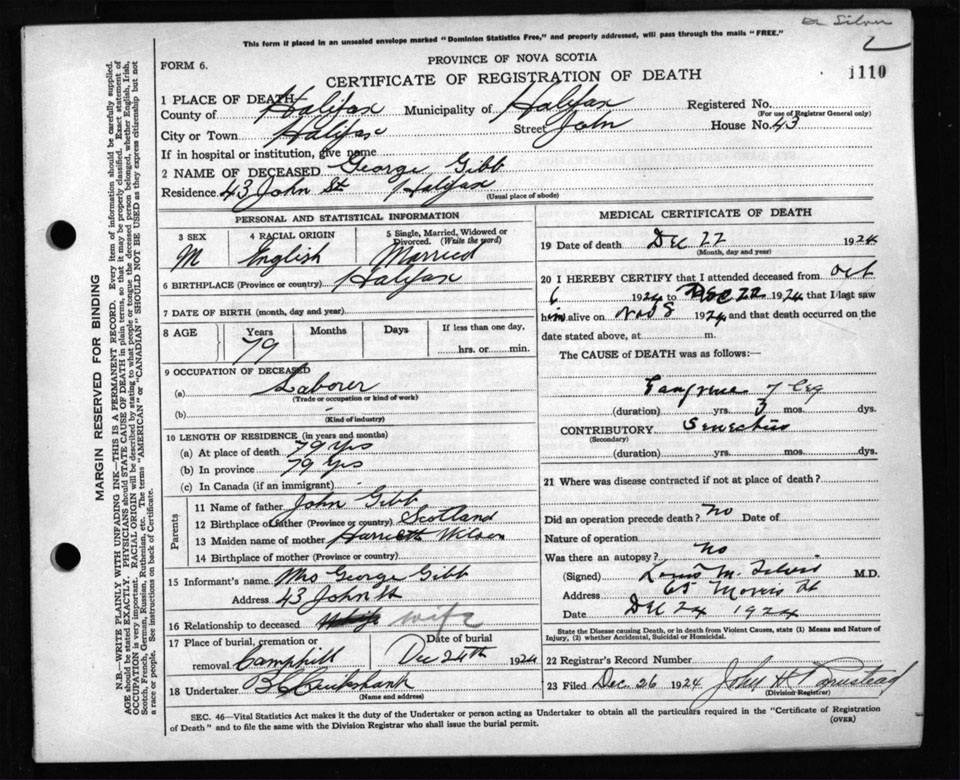 Dr Silver
This form if placed in an unsealed envelope marked "Dominion Statistics Free," and properly addressed, will pass through the mails "FREE."
FORM 6.
PROVINCE OF NOVA SCOTIA
CERTIFICATE OF REGISTRATION OF DEATH
1110
1 PLACE OF DEATH
County of Halifax Municipality of Halifax Registered No.
(For use of Registrar General only)
City or Town Halifax Street John House No. 43
If in hospital or institution, give name
2 NAME OF DECEASED George Gibb
Residence 43 John St Halifax
(Usual place of abode)
PERSONAL AND STATISTICAL INFORMATION
3 SEX
M
4 RACIAL ORIGIN
English
5 Single, Married, Widowed or Divorced. (Write the word)
Married
6 BIRTHPLACE (Province or country) Halifax
7 DATE OF BIRTH (month, day and year)
8 AGE
Years Months Days If less than one day,
79 hrs. or min.
9 OCCUPATION OF DECEASED
(a) Laborer
(Trade or occupation or kind of work)
(b)
(Kind of industry)
10 LENGTH OF RESIDENCE (in years and months)
(a) At place of death 79 yrs
(b) In province 79 yrs
(c) In Canada (if an immigrant)
Parents
11 Name of father John Gibb
12 Birthplace of father (Province or country) Scotland
13 Maiden name of mother Harriett Wilson
14 Birthplace of mother (Province or country)
15 Informant's name Mrs George Gibb
Address 43 John St
16 Relationship to deceased wife
17 Place of burial, cremation or Date of burial
removal Camphill Dec 24th 1924
18 Undertaker
(Name and address)
MEDICAL CERTIFICATE OF DEATH
19 Date of death Dec 22 1924
(Month, day and year)
20 I HEREBY CERTIFY that I attended deceased from Oct
6 1924 to Dec 22 1924 that I last saw
him alive on Nov 8 1924 and that death occurred on the
date stated above, at m.
The CAUSE of DEATH was as follows:—
Gangrene of Leg
(duration) yrs. 3 mos. dys.
CONTRIBUTORY Senectus
(Secondary)
(duration) yrs. mos. dys.
21 Where was disease contracted if not at place of death?
Did an operation precede death? no Date of
Nature of operation
Was there an autopsy? no
(Signed) Louis M. Silver M.D.
Address 65 Morris St
Date Dec 24 1924
State the Disease causing Death, or in death from Violent Causes, state (1) Means and Nature of
Injury, (2) whether Accidental, Suicidal or Homicidal.
22 Registrar's Record Number
23 Filed Dec. 26 1924 John H
(Division Registrar)
SEC. 46—Vital Statistics Act makes it the duty of the Undertaker or person acting as Undertaker to obtain all the particulars required in the "Certificate of Registration
of Death" and to file the same with the Division Registrar who shall issue the burial permit.
(OVER)
MARGIN RESERVED FOR BINDING
N.B.—WRITE PLAINLY WITH UNFADING INK—THIS IS A PERMANENT RECORD. Every item of information should be carefully supplied.
AGE should be stated EXACTLY. PHYSICIANS should STATE CAUSE OF DEATH in plain terms, so that it may be properly classified. Exact statement of
OCCUPATION is very important. RACIAL ORIGIN will be described by stating to what people or tongue the deceased person belonged, whether English, Irish,
Scotch, French, German, Russian, Ruthenian, etc. The terms "AMERICAN" or "CANADIAN" SHOULD NOT BE USED as they express citizenship but not
a race or people. See instructions on back of Certificate.